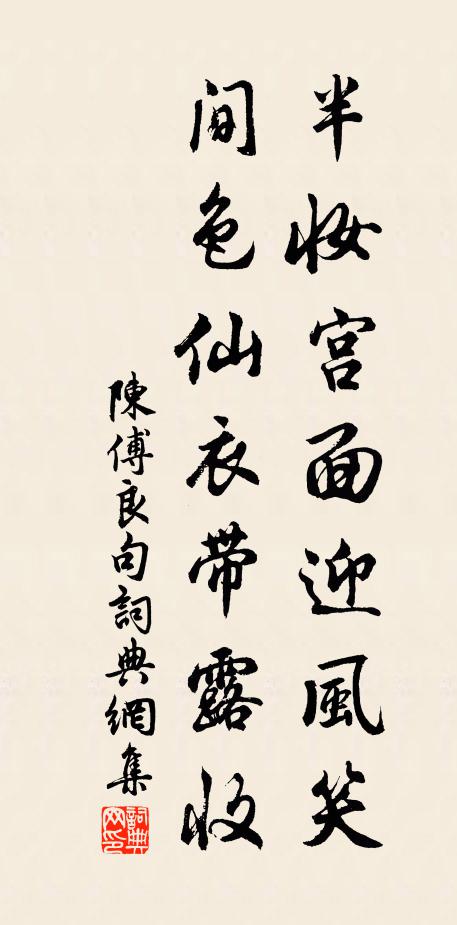 半妝宫面迎風笑
间色仙衣带露收
陳傅良句詞典網集
詞典網印